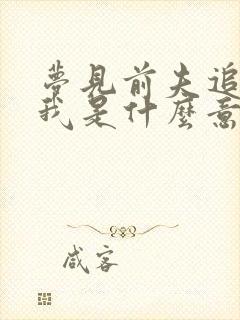 夢見前夫追
我是什麼意
咸客